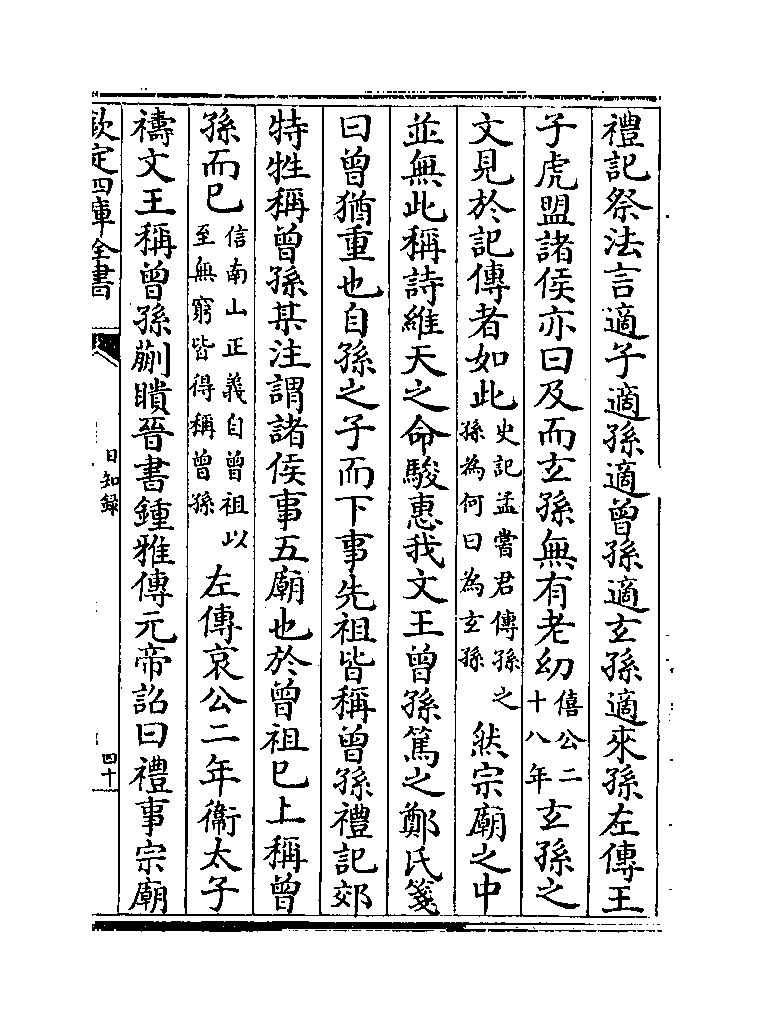 禮記祭法言適子適孫適曾孫適玄孫適來孫左傳王
子虎盟諸侯亦曰及而玄孫無有老幼僖公二十八年玄孫之
文見於記傳者如此史記孟嘗君傳孫之孫為何曰為玄孫然宗廟之中
並無此稱詩維天之命駿惠我文王曾孫篤之鄭氏箋
曰曾猶重也自孫之子而下事先祖皆稱曾孫禮記郊
特牲稱曾孫某注謂諸侯事五廟也於曾祖已上稱曾
孫而已信南山正義自曾祖以至無窮皆得稱曾孫左傳哀公二年衞太子
禱文王稱曾孫蒯聵晉書鍾雅傳元帝詔曰禮事宗廟
欽定四庫全書
日知錄
四十